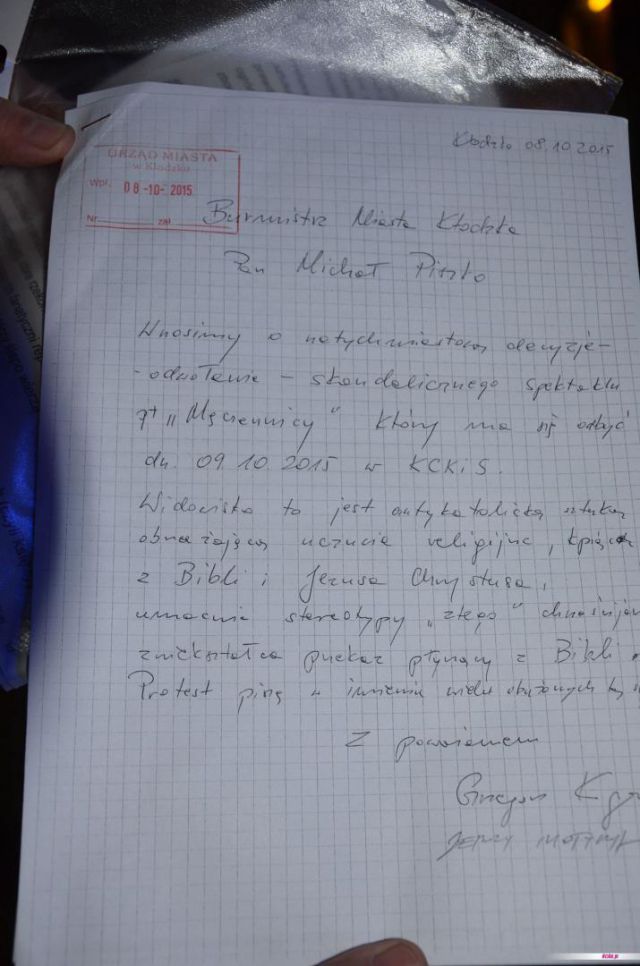 Kłodzko 08.10.2015
URZĄD MIASTA
w Kłodzku
Wpł. 08-10-2015
Nr zał
Burmistrz Miasta Kłodzka
Pan Michał Piszko
Wnosimy o natychmiastową decyzję-
-odwołanie - skandalicznego spektaklu
pt „Męczennicy" który ma się odbyć
dn. 09.10.2015 w KCKiS.
Widowisko to jest antykatolicką sztuką
obrażającą uczucia religijne, kpiąca
z Bibli i Jezusa Chrystusa,
umacnia stereotypy „złego"
zniekształca przekaz płynący z Bibli
Protest piszę w imieniu wielu obrażonych
Z poważaniem
Grzegorz
JERZY